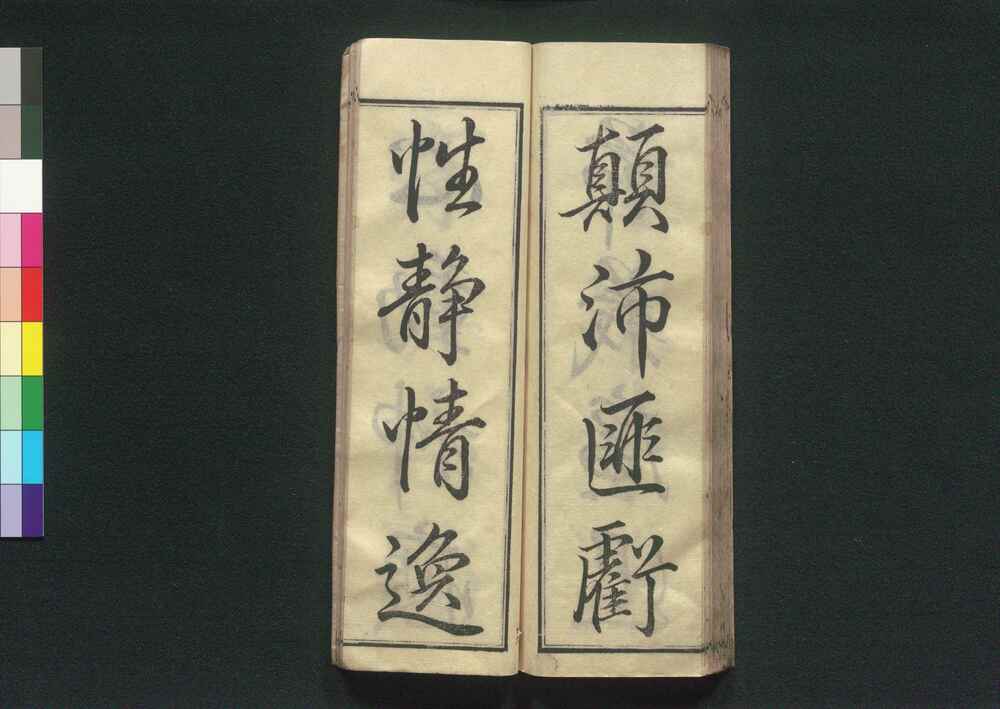 顛沛匪虧
性静情逸